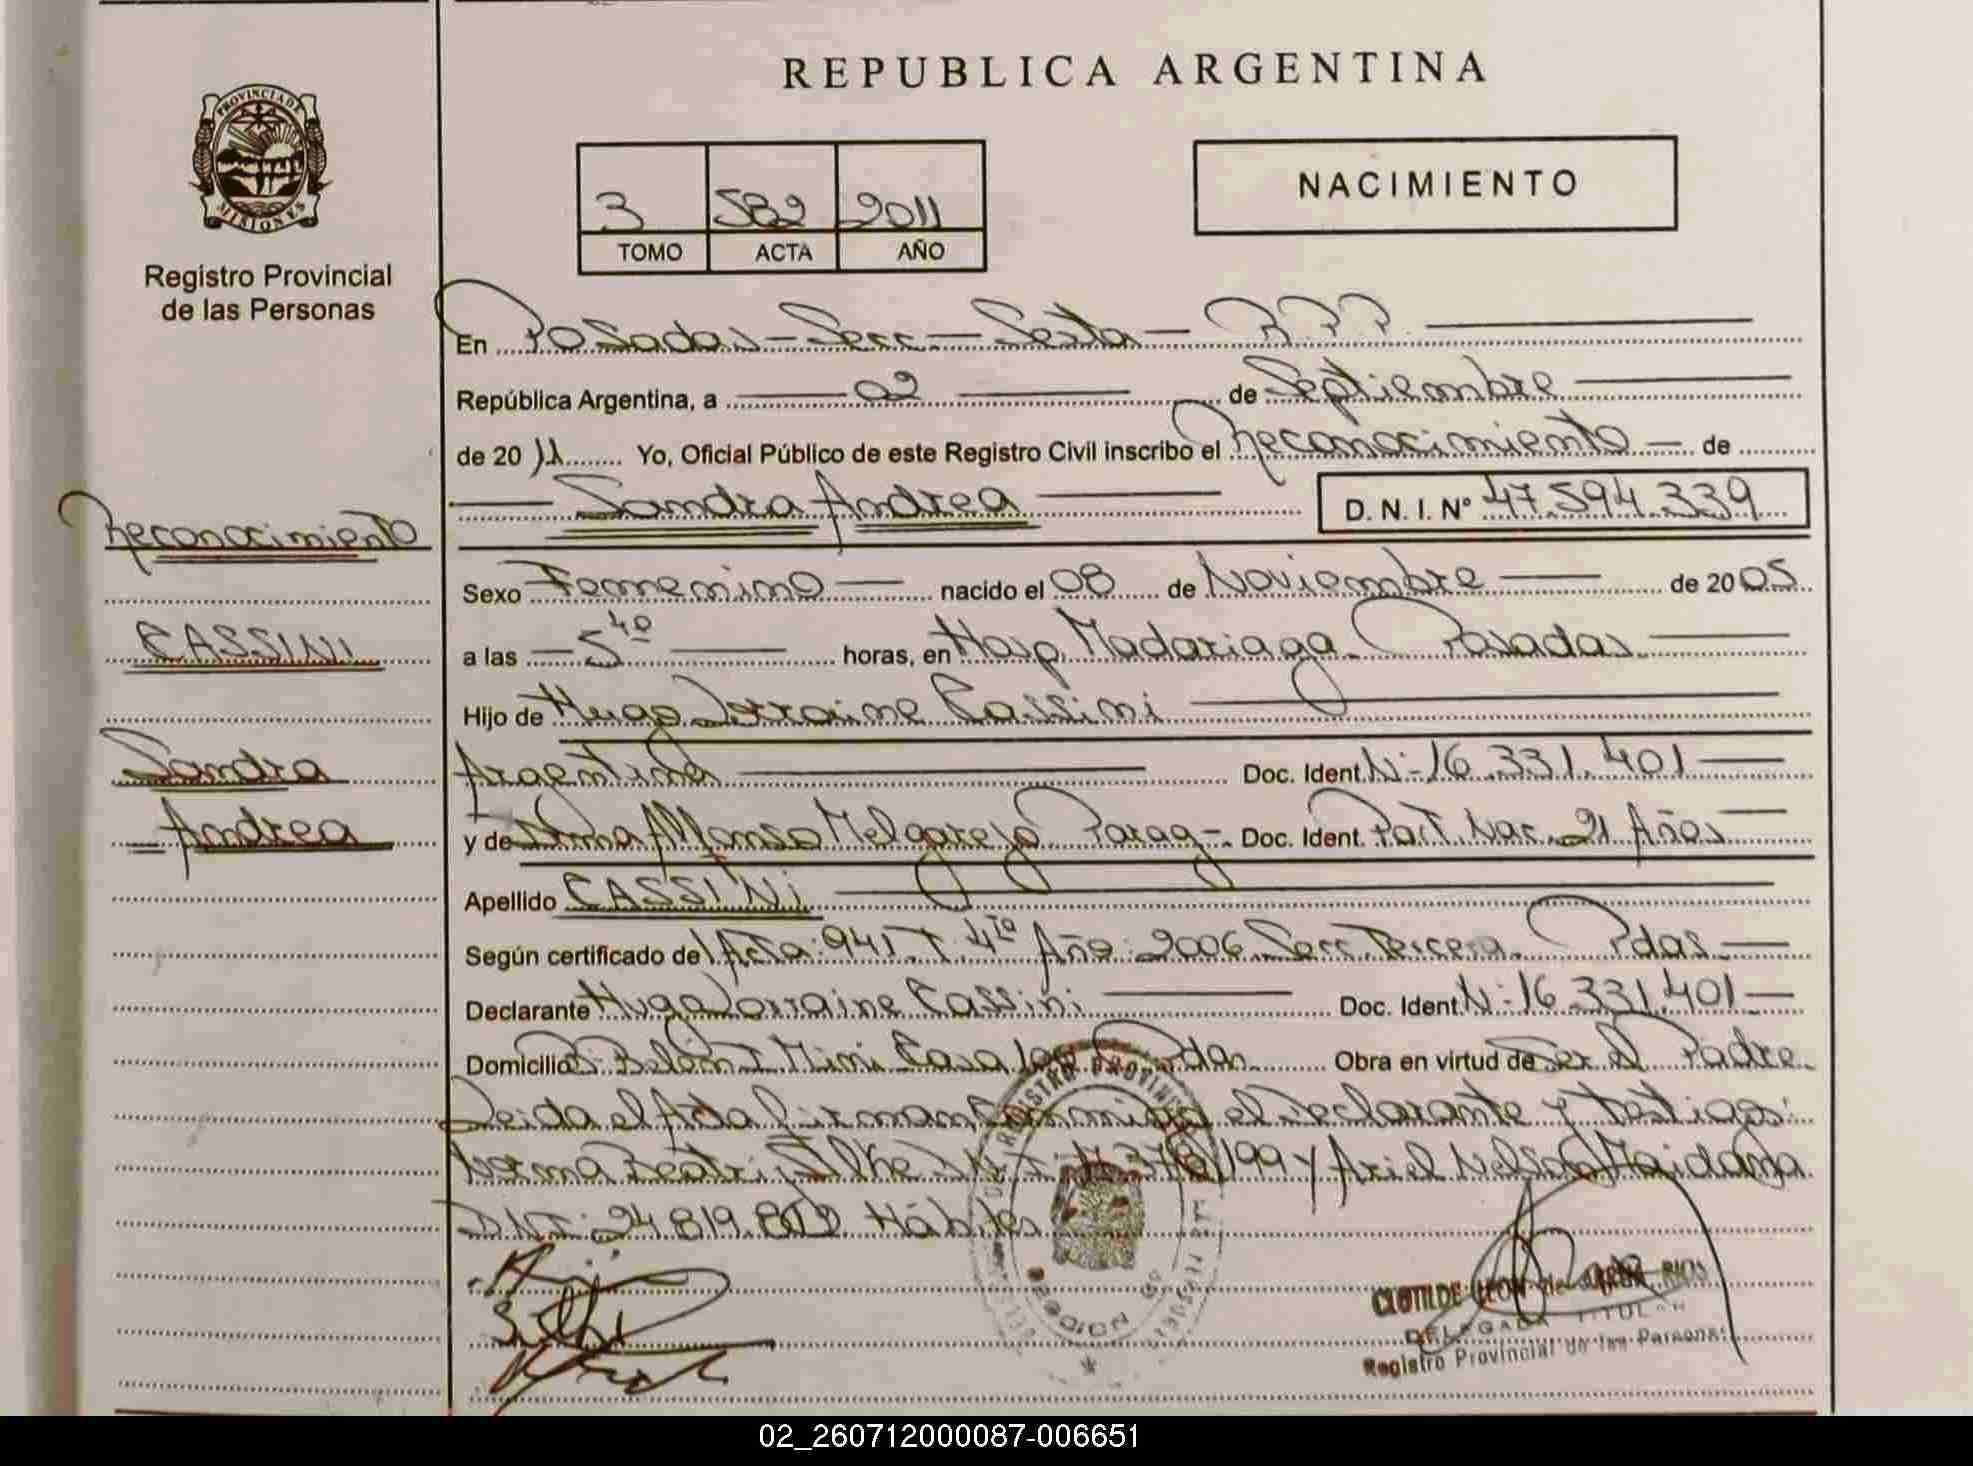 PROVINCIA DE
MISIONES
Registro Provincial
de las Personas
Reconocimiento
CASSINI
Sandra
Andrea
REPUBLICA ARGENTINA
3 582 2011
TOMO ACTA AÑO
NACIMIENTO
En Posadas - Secc - Sexta - R.P.P.
República Argentina, a 02 de Septiembre
de 2011 Yo, Oficial Público de este Registro Civil inscribo el Reconocimiento de
Sandra Andrea D. N. I. Nº 47.594.339
Sexo Femenino nacido el 08 de Noviembre de 2005
a las 5 40 horas, en Hosp. Madariaga - Posadas
Hijo de Hugo Lorraine Cassini
Argentina Doc. Ident. Nº 16.331.401
y de Alfonso Melgarejo Parag - Doc. Ident. Part. Nac. 21 Años
Apellido CASSINI
Según certificado de Acta: 941 T. 4to Año: 2006 Secc. Tercera. Pdas
Declarante Hugo Lorraine Cassini Doc. Ident. Nº 16.331.401
Domicilio Mini Casa Pdas Obra en virtud de Ser el Padre
Leida el Acta firman conmigo el Declarante y testigos:
Norma Beatriz y Ariel Nelson Maidana
DNI: 24.819.802 Hábiles
CLOTILDE LEON de RIOS
DELEGADA TITULAR
Registro Provincial de las Personas
02_260712000087-006651